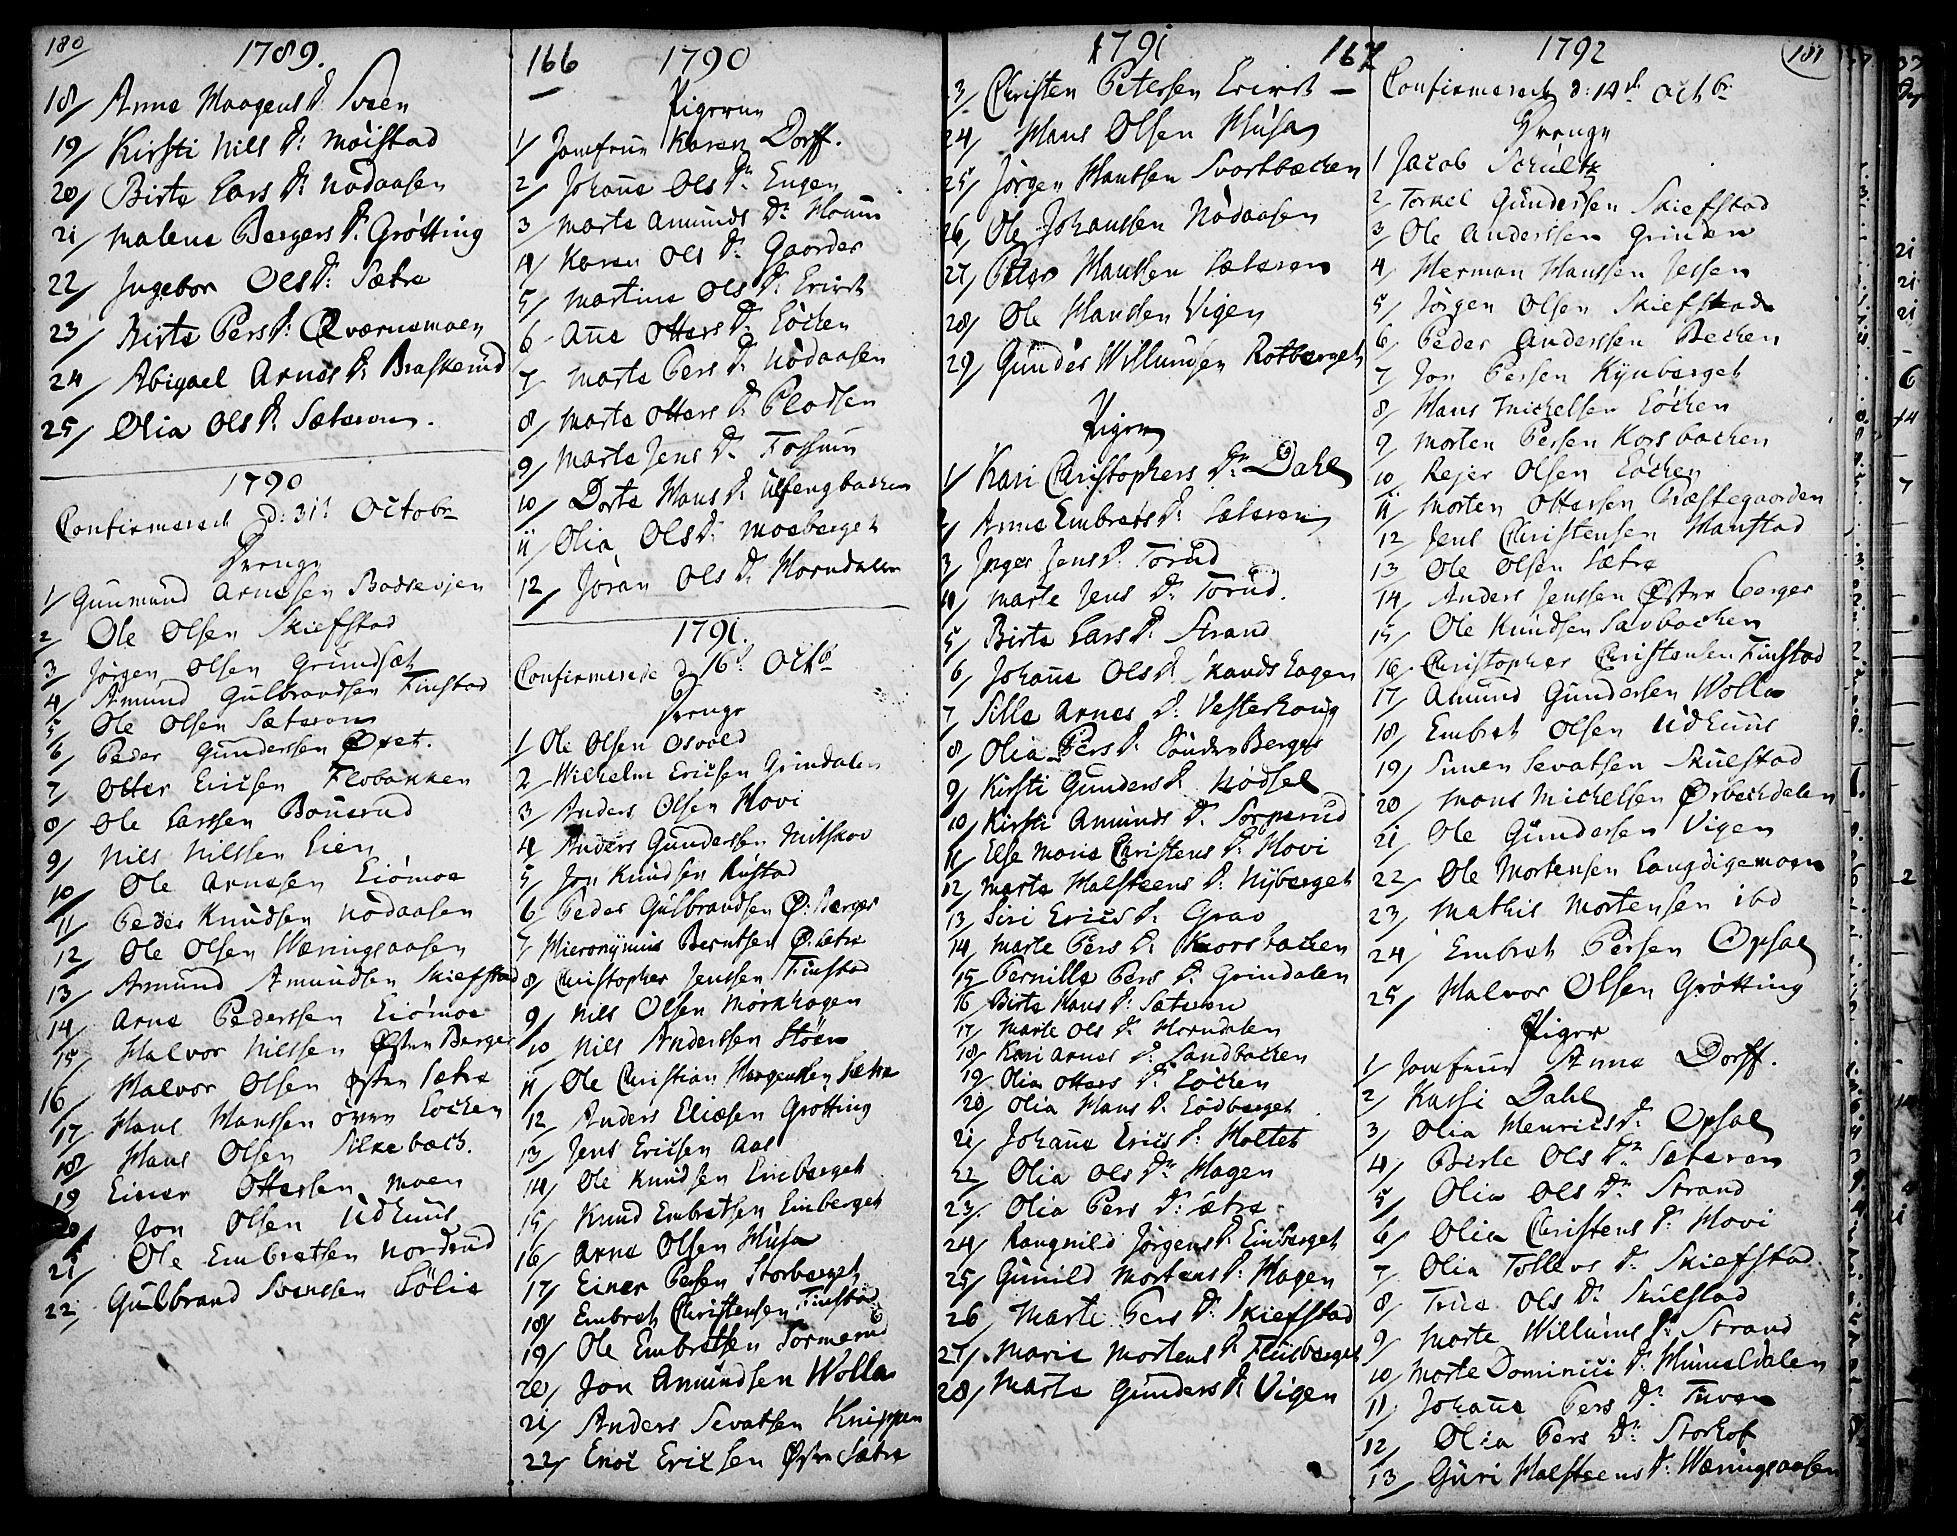 180
1789.
18/ Anne Maagens D: Sveen
19/ Kirsti Nils D: Moistad
20/ Birte Lars D: Nodaasen
21/ Malene Bergers D: Grötting
22/ Ingebor Ols D: Sætre
23/ Birte Pers D: Qværnemoen
24/ Abigael Arnes D: Braskerud
25/ Olia Ols D: Sæteren.
1790
Confirmerede d: 31t Octobr
Drenge
1/ Gunmund Arnesen
2/ Ole Olsen Skiefstad
3/ Jörgen Olsen Grundsæt
4/ Amund Gulbrandsen Finstad
5/ Ole Olsen Sæteren
6/ Peder Gundersen Öxet.
7/ Otter Ericsen Flobakken
8/ Ole Larssen Bonerud
9/ Nils Nilssen Lien
10/ Ole Arnesen Eiömoe
11/ Peder Knudsen Nodaasen
12/ Ole Olsen Wæringsaasen
13/ Amund Amundsen Skiefstad
14/ Arne Pederssen Eiömoe
15/ Halvor Nilssen Östre Berger
16/ Halvor Olsen östre Sætre
17/ Hans Hanssen övre Löcken
18/ Hans Olsen Silkebæck.
19 Einer Ottersen Moen
20/ Jon Olsen Udhuus
21/ Ole Embretsen Nordrud
22/ Gulbrand Svenssen Sölie
166 1790
Pigerne
1/ Jomfrue Karen Dorff.
2/ Johane Ols Dr Engen
3/ Marte Amunds Dr
4/ Karen Ols Dr Gaarder
5/ Martine Ols Dr Erirst
6 Ane Otters Dr Löcken
7/ Marte Pers Dr Nodaasen
8/ Marte Otters Dr Pladsen
9/ Marte Jens Dr Fossum
10/ Dorte Hans Dr Ulfengbachen
11/ Olia Ols Dr Moeberget
12/ Jöran Ols Dr Horndalen
1791.
Confirmerede d 16t Octbr
Drenge
1/ Ole Olsen Osvold
2/ Wilhelm Ericsen Grindalen
3/ Anders Olsen Hovi
4/ Anders Gundersen Mitskov
5/ Jon Knudsen Rustad
6/ Peder Gulbrandsen Ö: Berger
7/ Hieronymus Berntsen Ö: Sætre
8/ Christopher Jenssen Finstad
9/ Nils Olsen Mörkhagen
10 Nils Anderssen Stöen
11/ Ole Christian Sætre
12/ Anders Eliesen Grotting
13/ Jens Ericsen Aas
14/ Ole Knudsen Einberget
15/ Knud Embretsen Einberget
16/ Arne Olsen Husa
17/ Einer Persen Storberget
18/ Embret Christensen Finstad
19/ Ole Embretsen Sormerud
20/ Jon Amundsen Wolla
21/ Anders Sevatsen Knippen
22/ Enoc Ericsen Östre Sætre
1791 167
23/ Christen Petersen Erirst
24/ Hans Olsen Husa
25/ Jörgen Hansen Svartbæcken
26/ Ole Johanssen Nödaasen
27/ Peter Hansen Sæteren
28/ Ole Hansen Vigen
29/ Gunder Willumsen Rotberget
Piger
1/ Kari Christophers Dr Dahl
2/ Anne Embrets Dr Sæteren
3/ Inger Jens Dr Torud
4/ Marte Jens Dr Torud.
5/ Birte Lars Dr Strand
6/ Johane Ols Dr Strandshagen
7/ Sille Arnes Dr Vesterhoug
8/ Olia Pers Dr Söndre Berger
9/ Kirsti Gunders D. Nödset
10/ Kirsti Amunds Dr Sormerud
11/ Else Marie Christens Dr Hovi
12/ Marte Halsteens Dr Nyberget
13/ Siri Erics Dr Grav
14/ Marte Pers Dr Korsbachen
15/ Pernille Pers Dr Grindalen
16/ Birte Hans Dr Sæteren
17/ Marte Ols Dr Horndalen
18/ Kari Arnes Dr Sandbacken
19/ Olia Otters Dr Löcken
20/ Olia Hans Dr Lödberget
21/ Johane Erics Dr Holtet
22/ Olia Ols Dr Hagen
23/ Olia Pers Dr Sætre
24/ Rangnild Jörgens D. Einberget
25/ Gunild Mortens Dr Hagen
26/ Marte Pers Dr Skiefstad
27/ Marie Mortens Dr Fluesberget
28/ Marte Gunders Dr Vigen
1792 181
Confirmerede d: 14de Octbr
Drenge
1 Jacob Schultz
2 Torkel Gundersen Skiefstad
3/ Ole Anderssen Grinden
4/ Herman Hanssen Jessen
5/ Jörgen Olsen Skiefstad
6/ Peder Anderssen Becken
7/ Jon Persen Kynberget
8/ Hans Michelsen Löcken
9/ Morten Persen Korsbacken
10 Rejer Olsen Löcken
11/ Morten Ottersen Præstegaarden
12/ Jens Christensen Hanstad
13/ Ole Olsen Sætre
14/ Anders Jenssen Östre Berger
15/ Ole Knudsen Savbacken
16/ Christopher Christensen Finstad
17/ Amund Gundersen Wolla
18/ Embret Olsen Udhuus
19/ Simen Sevatsen Skulstad
20/ Mons Michelsen Ørbechdalen
21/ Ole Gundersen Vigen
22/ Ole Mortensen Langdigemoen
23/ Mathis Mortensen ibd
24/ Embret Persen Opsal
25/ Halvor Olsen Grötting
Piger
1/ Jomfrue Anne Dorff.
2/ Kassi Dahl
3/ Olia Henrics Dr Opsal
4/ Birte Ols Dr Sæteren
5/ Olia Ols Dr Strand
6/ Olia Christens Dr Hovi
7/ Olia Tollevs Dr Skiefstad
8/ True Ols Dr Skulstad
9/ Marte Willums Dr Strand
10/ Marte Dominici Dr Hummeldalen
11/ Johane Pers Dr Tuven
12/ Olia Pers Dr Storhof
13/ Guri Halsteens D: Wæringsaasen